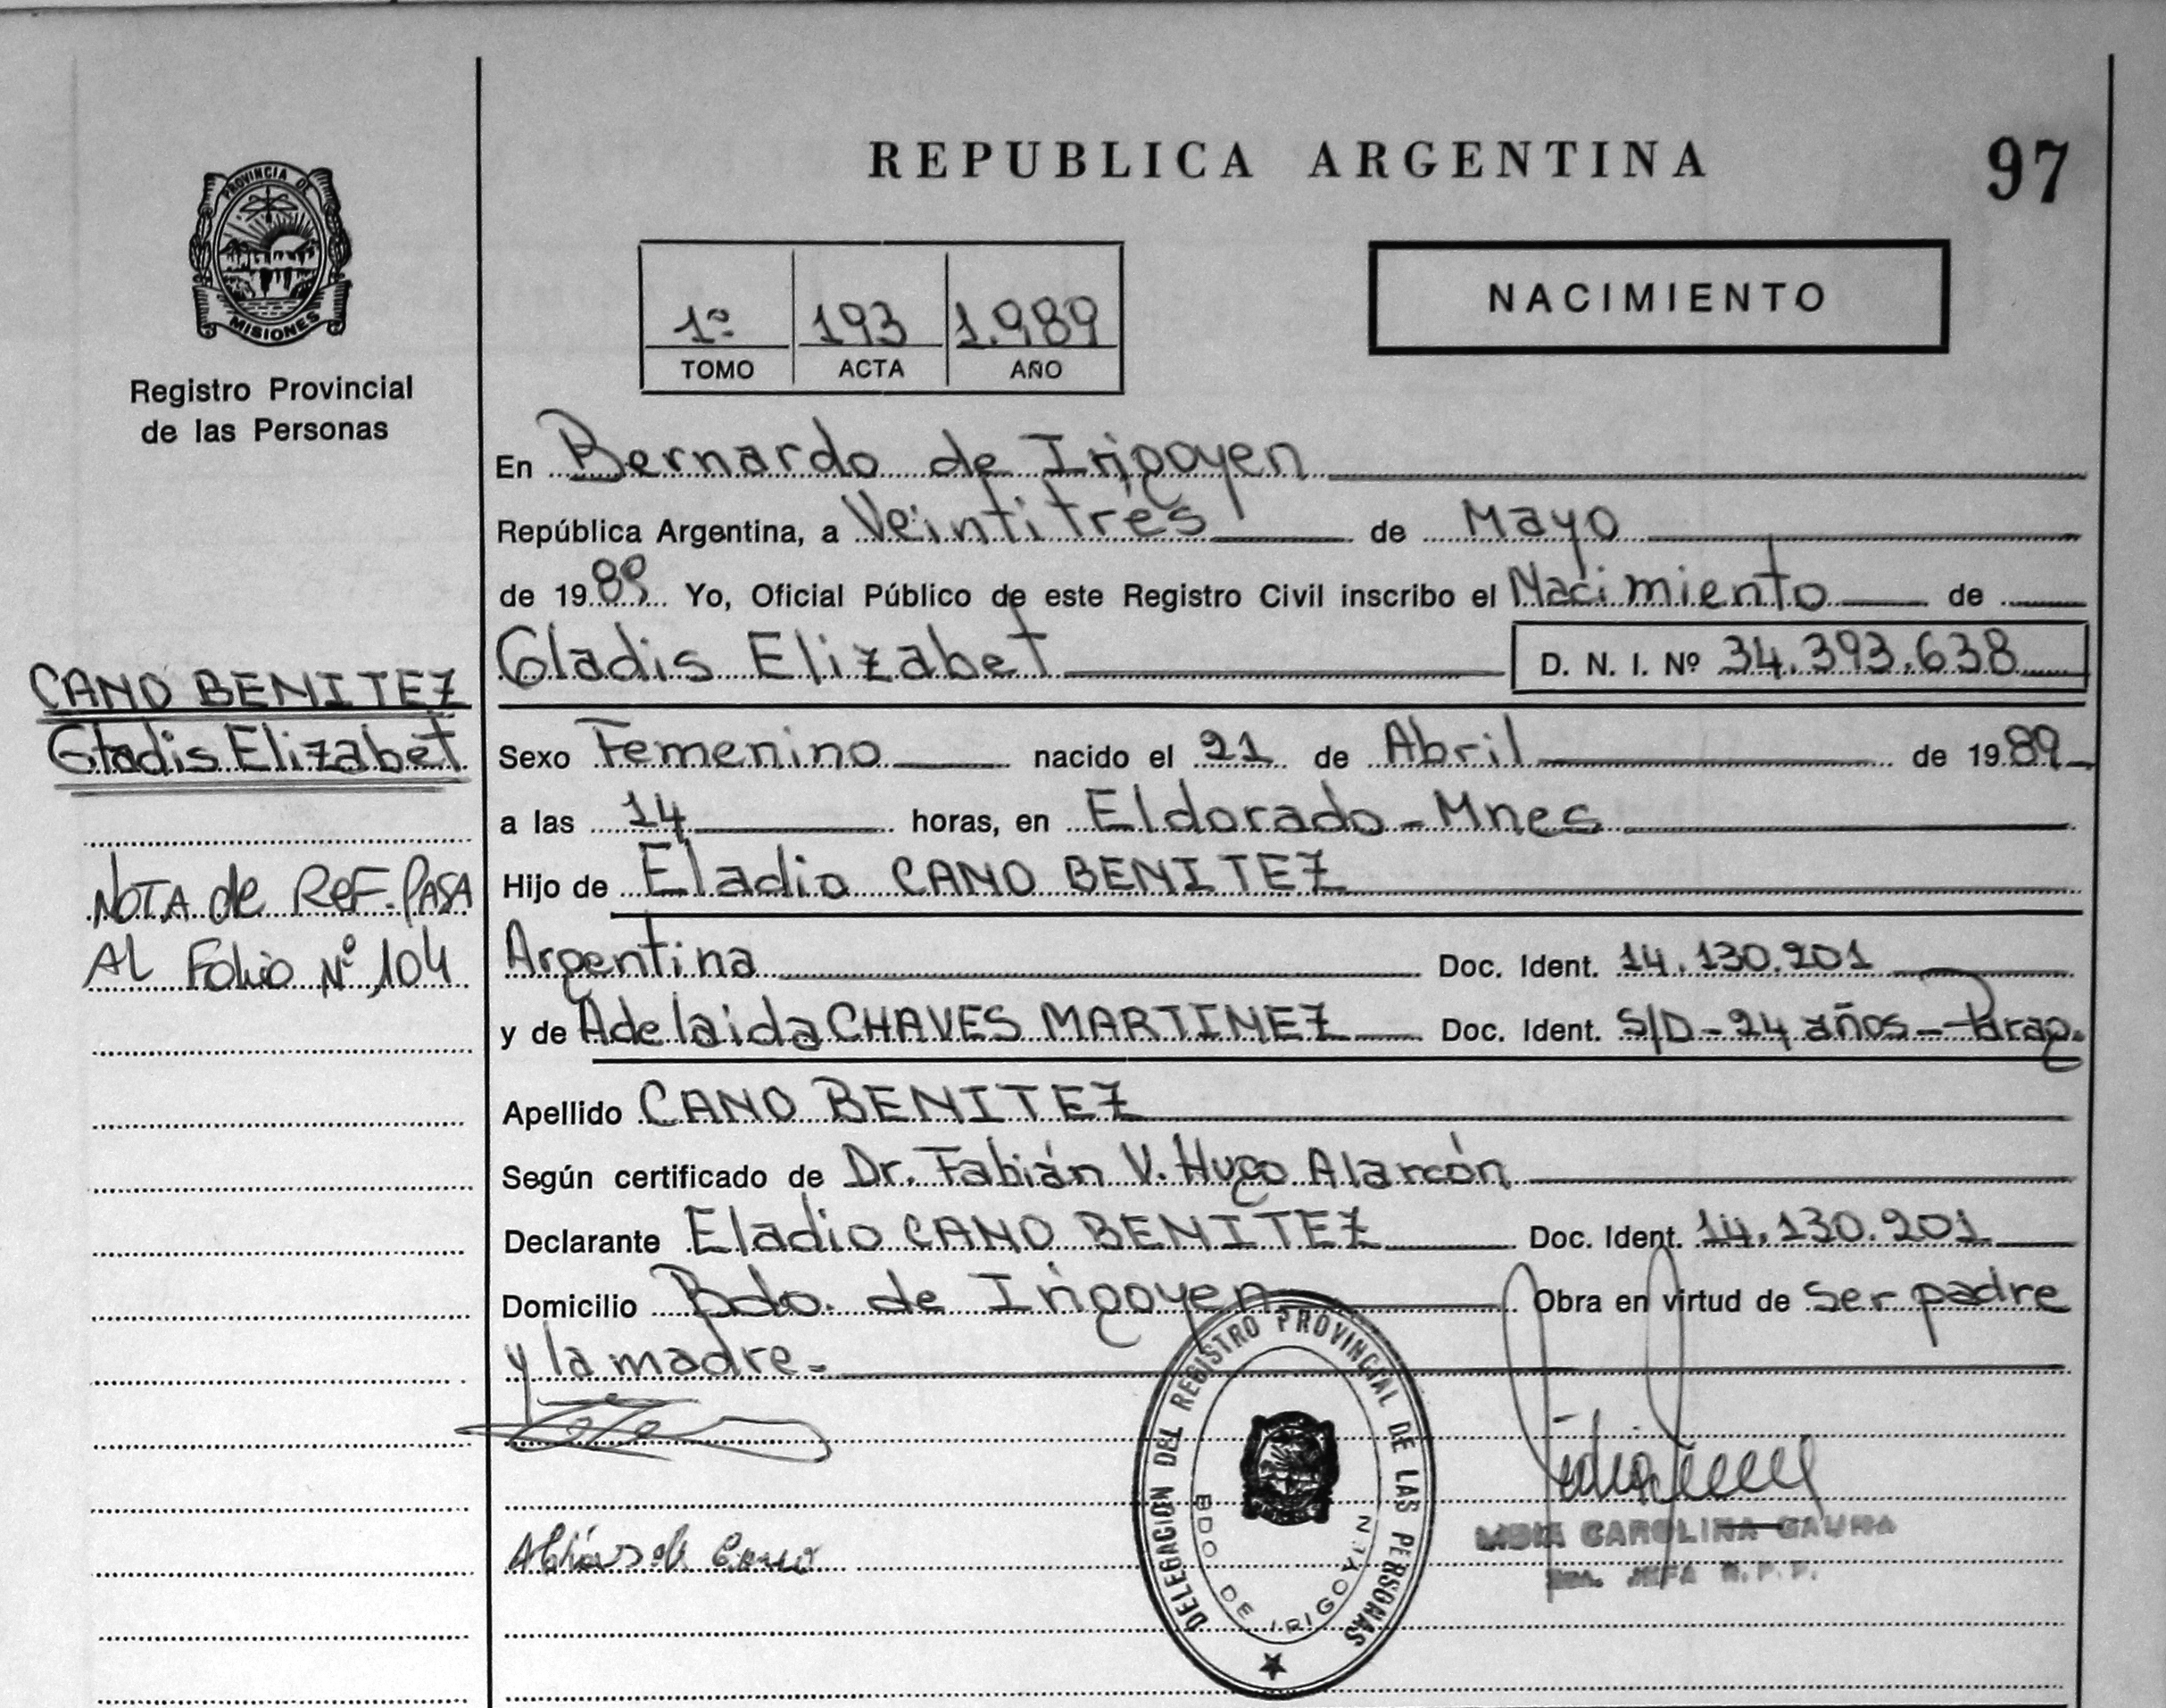 REPUBLICA ARGENTINA
97
PROVINCIA DE
MISIONES
Registro Provincial
de las Personas
1º 193 1.989
TOMO ACTA AÑO
NACIMIENTO
En Bernardo de Irigoyen
República Argentina, a Veintitrés de Mayo
de 1989 Yo, Oficial Público de este Registro Civil inscribo el Nacimiento de
Gladis Elizabet D. N. I. Nº 34.393.638
CANO BENITEZ
Gladis Elizabet
Sexo Femenino nacido el 21 de Abril de 1989
a las 14 horas, en Eldorado - Mnes
Hijo de Eladio CANO BENITEZ
NOTA de REF. PASA
AL Folio Nº 104
Argentina Doc. Ident. 14.130.201
y de Adelaida CHAVES MARTINEZ Doc. Ident. S/D - 24 años - Parag.
Apellido CANO BENITEZ
Según certificado de Dr. Fabián V. Hugo Alarcón
Declarante Eladio CANO BENITEZ Doc. Ident. 14.130.201
Domicilio Bdo. de Irigoyen Obra en virtud de ser padre
y la madre.-
DELEGACION DEL REGISTRO PROVINCIAL DE LAS PERSONAS
BDO DE IRIGOYEN
LIDIA CAROLINA GAUNA
JEFA R.P.P.